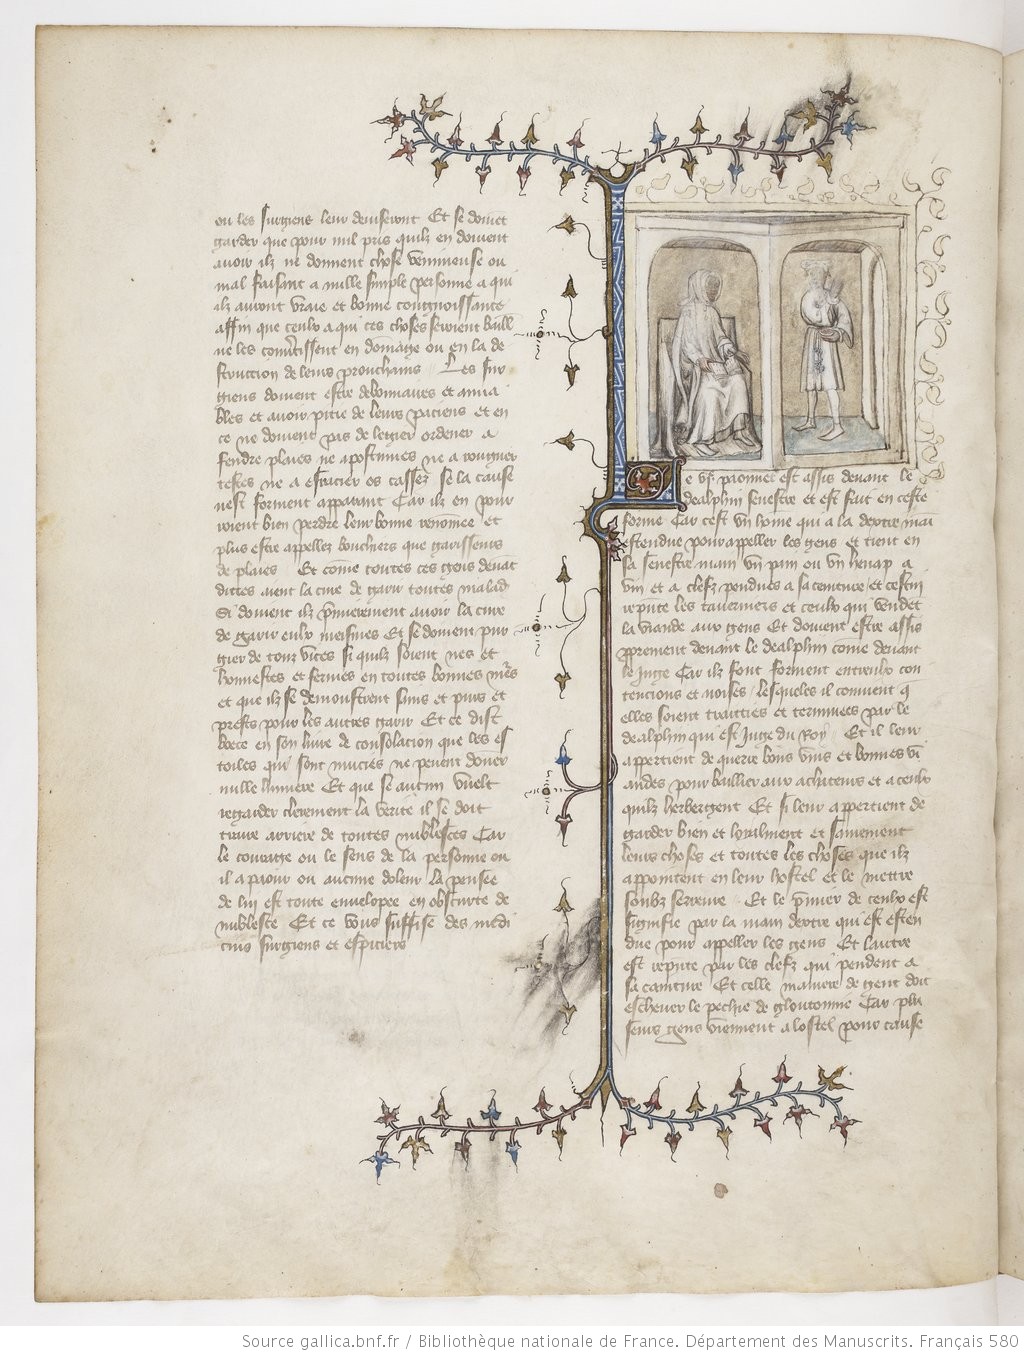 ou les surgiens leur deviseront Et se doivet
garder que pour nul pris quilz en doivent
avoir ilz ne donnent chose venimeuse ou
mal faisant a nulle simple personne a qui
ilz auront vraie et bonne congnoissance
affin que ceulx a qui ces choses seroient baill
ne les convtissent en domage ou en la de
struction de leurs prouchains Les sur
giens doivent estre debonnaires et amia
bles et avoir pitie de leurs paciens et en
ce ne doivent pas de legier ordener a
fendre plaies ne apostumes ne a rongnier
testes ne a os cassez se la cause
nest forment apparant Car ilz en pour
roient bien perdre leur bonne renomee et
plus estre appellez bouchiers que garisseurs
de plaies Et come toutes ces gens devat
dittes aient la cure de garir toutes malad
Si doivent ilz pmierement avoir la cure
de garir eulx meismes Et se doivent pur
gier de touz vices si quilz soient nes et
honnestes et fermes en toutes bonnes murs
et que ilz se demonstrent sains et purs et
prests pour les autres garir Et ce dist
boece en son livre de consolation que les es
toiles qui sont mucies ne peuent doner
nulle lumiere Et que se aucun vuelt
regarder clerement la verite il se doit
traire arriere de toutes nublesces Car
le courage ou le sens de la personne ou
il a paour ou aucune doleur la pensee
de lui est toute envelopee en obscurte de
nublesce Et ce vous suffise des medi
cins surgiens et espiciers
Le vi paonnet est assis devant le
dealphin senestre et est fait en ceste
forme Car cest un home qui a la dextre main
estendue pour appeller les gens et tient en
sa senestre main un pain ou un henap a
vin et a clefz pendues a sa ceinture et cestui
repute les taverniers et ceulx qui vendet
la viande aux gens Et doivent estre assis
pprement devant le dealphin come devant
le juge Car ilz font forment entreulx con
tencions et noises lesqueles il convient q
elles soient traittees et terminees par le
dealphin qui est juge du Roy Et il leur
appertient de querre bons vins et bonnes vi
andes pour baillier aux achateurs et a ceulx
quilz herbergent Et si leur appertient de
garder bien et loyalment et sainement
leurs choses et toutes les choses que ilz
apportent en leur hostel et le mettre
soubz serreure Et le pmier de ceulx est
signifie par la main dextre qui est esten
due pour appeller les gens Et lautre
est repute par les clefz qui pendent a
sa cainture Et celle maniere de gent doit
eschever le pechie de gloutonnie Car plu
seurs gens viennent a lostel pour cause
Source gallica.bnf.fr / Bibliothèque nationale de France. Département des Manuscrits. Français 580